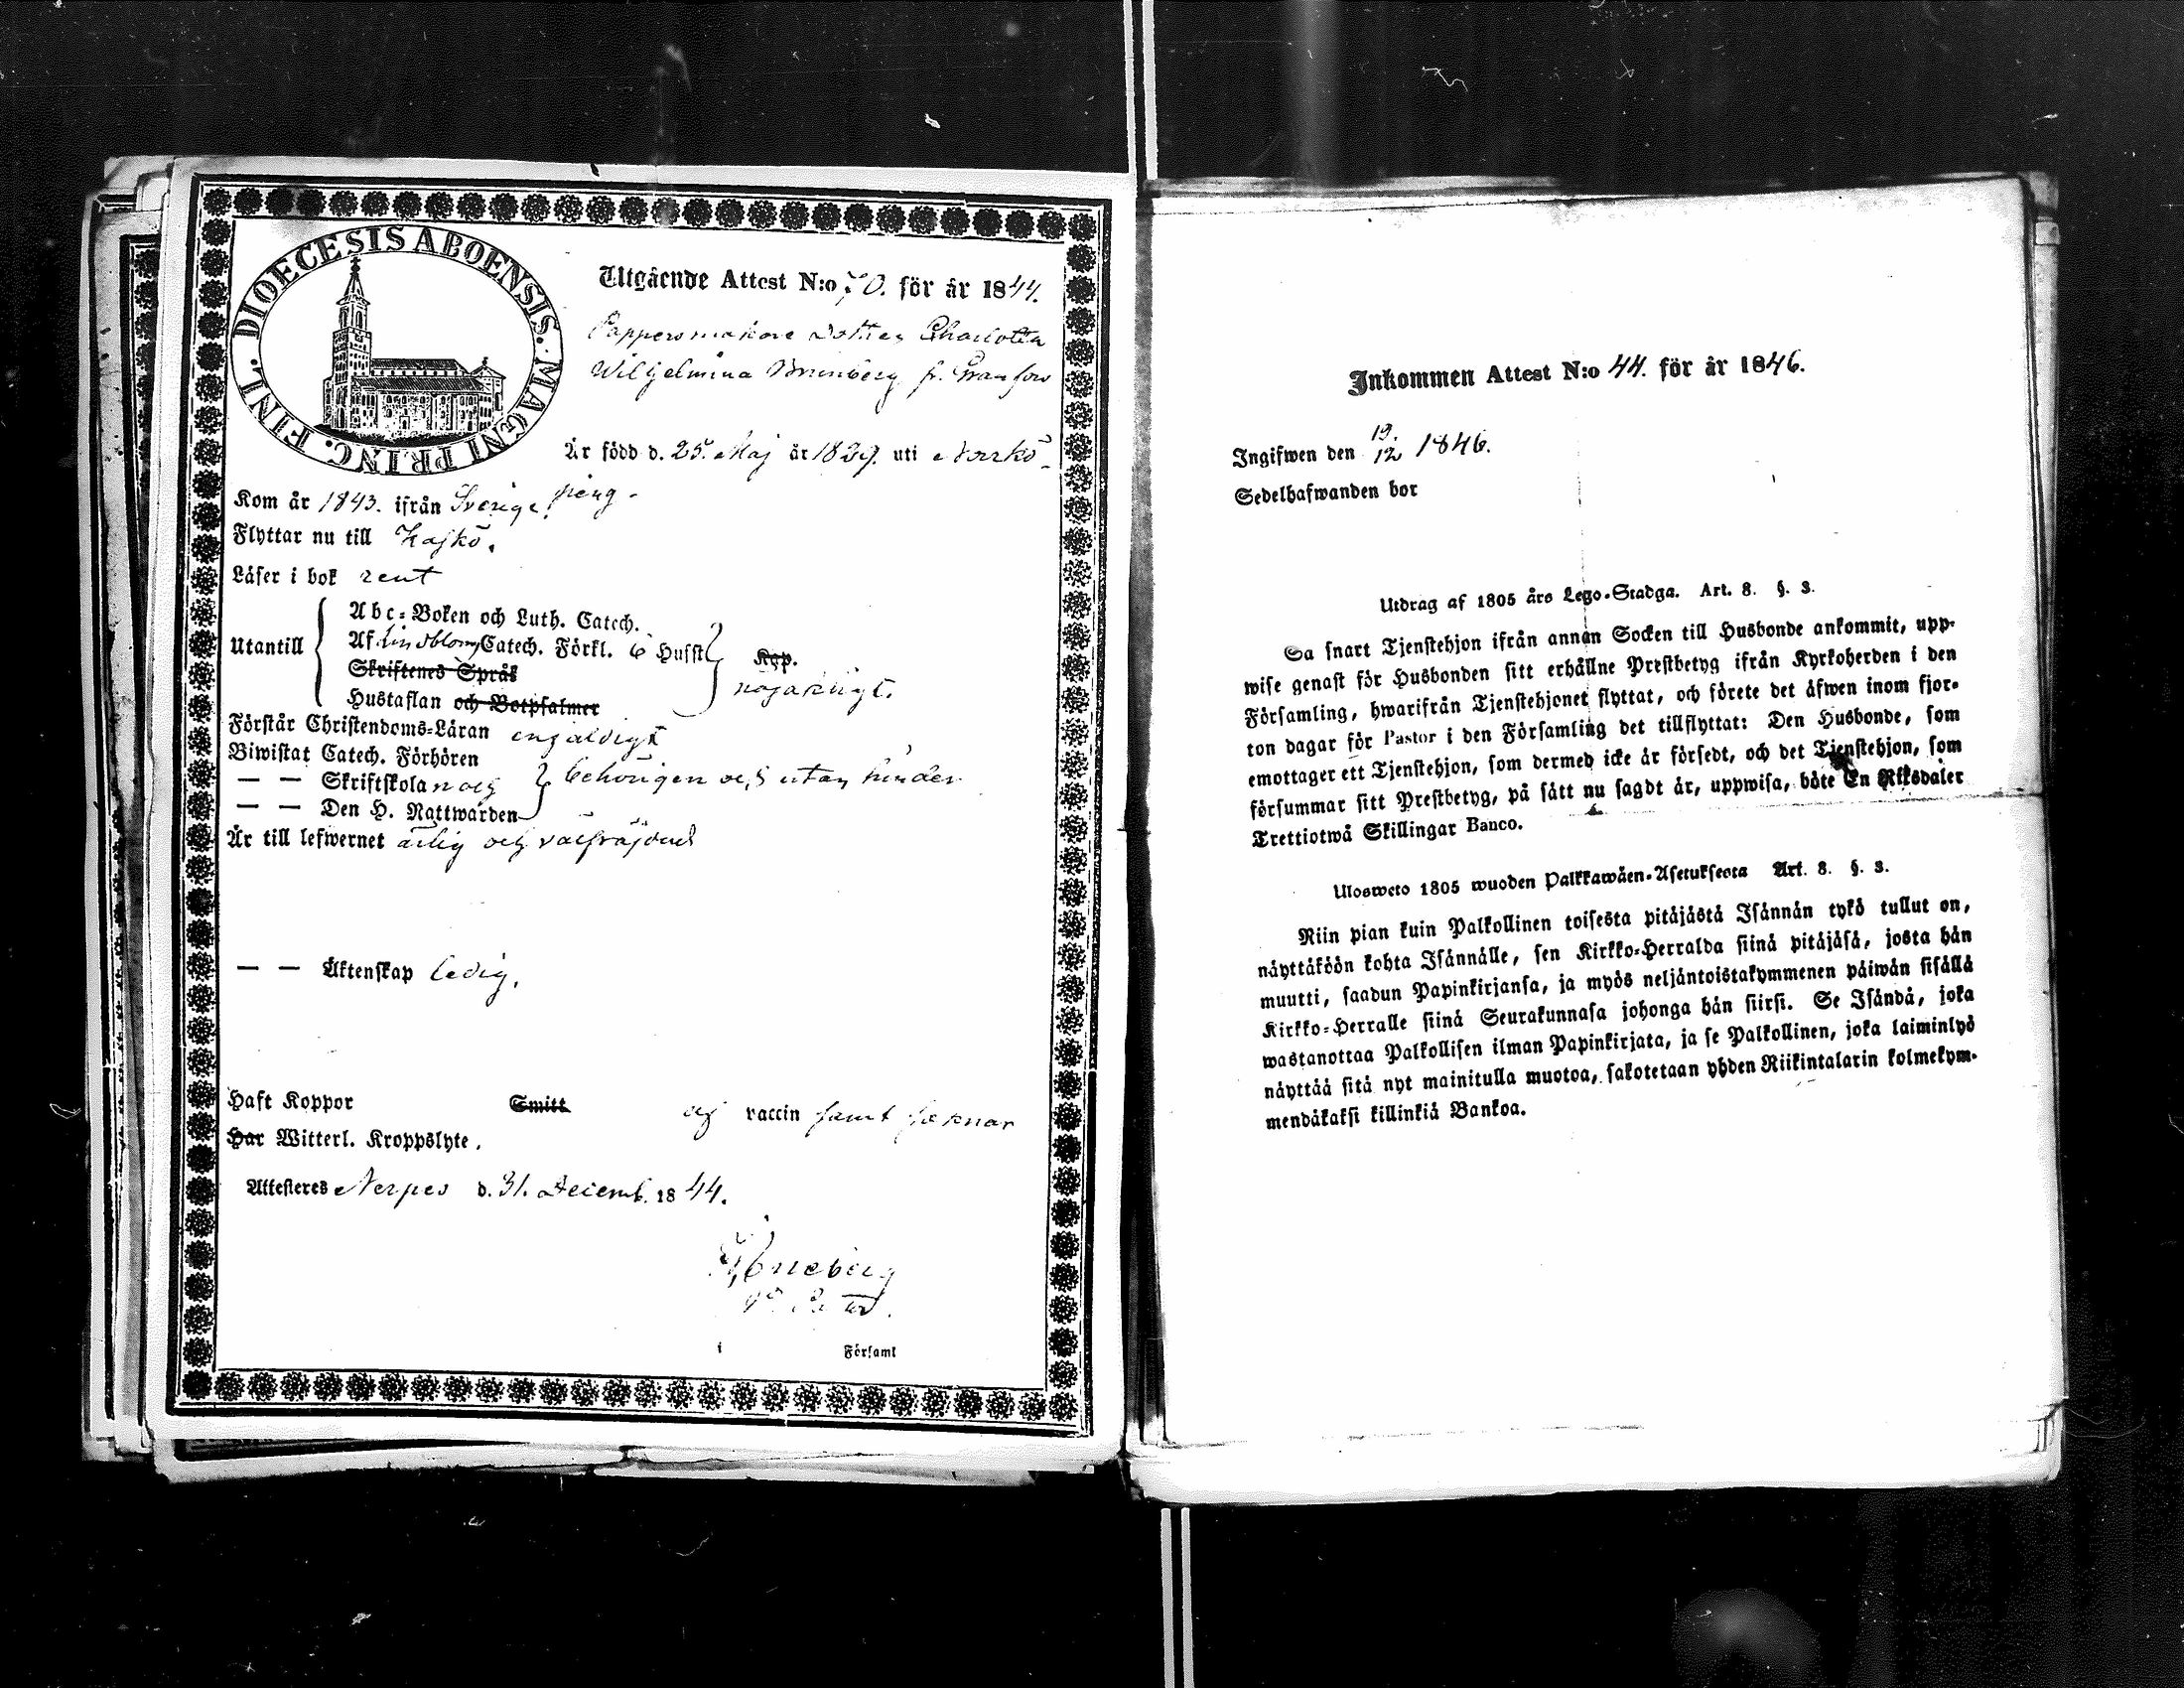 DIOECESIS ABOENSIS. MAGNI PRINC. FINL.
Utgående Attest N:o 70. för år 1844.
Pappersmakare dotter Charlotta
Wilhjelmina Brunberg fr.
Är född d. 25. Maj år 1829. uti Norrkö-
ping.
Kom år 1843. ifrån Sverige.
Flyttar nu till Kaskö.
Läser i bok rent
Utantill
Abc-Boken och Luth. Catech.
Af Lindbloms Catech. Förkl. 6 Hufst
Skriftenes Språk
Hustaflan och Botpsalmer
Kap.
nöjaktigt.
Förstår Christendoms-Läran enfaldigt
Biwistat Catech. Förhören
— — Skriftskola och
— — Den H. Nattwarden
behörigen och utan hinder
Är till lefwernet ärlig och välfräjdad
— — Äktenskap ledig.
Haft Koppor Smitt vaccin samt
Har Witterl. Kroppslyte.
Attesteres Nerpes d. 31. Decemb. 1844.
i Församl
Inkommen Attest N:o 44. för år 1846.
Ingifwen den 19/12 1846.
Sedelhafwanden bor
Utdrag af 1805 års Lego-Stadga. Art. 8. §. 3.
Sa snart Tjenstehjon ifrån annan Socken till Husbonde ankommit, upp-
wise genast för Husbonden sitt erhållne Prestbetyg ifrån Kyrkoherden i den
Församling, hwarifrån Tjenstehjonet flyttat, och förete det äfwen inom fjor-
ton dagar för Pastor i den Församling det tillflyttat: Den Husbonde, som
emottager ett Tjenstehjon, som dermed icke är försedt, och det Tjenstehjon, som
försummar sitt Prestbetyg, på sätt nu sagdt är, uppwisa, böte En Riksdaler
Trettiotwå Skillingar Banco.
Ulosweto 1805 wuoden Palkkawäen-Asetuksesta Art. 8. §. 3.
Niin pian kuin Palkollinen toisesta pitäjästä Isännän tykö tullut on,
näyttäköön kohta Isännälle, sen Kirkko-Herralda siinä pitäjäsä, josta hän
muutti, saadun Papinkirjansa, ja myös neljäntoistakymmenen päiwän sisällä
Kirkko-Herralle siinä Seurakunnasa johonga hän siirsi. Se Isändä, joka
wastanottaa Palkollisen ilman Papinkirjata, ja se Palkollinen, joka laiminlyö
näyttää sitä nyt mainitulla muotoa, sakotetaan yhden Riikintalarin kolmekym-
mendäkaksi killinkiä Bankoa.